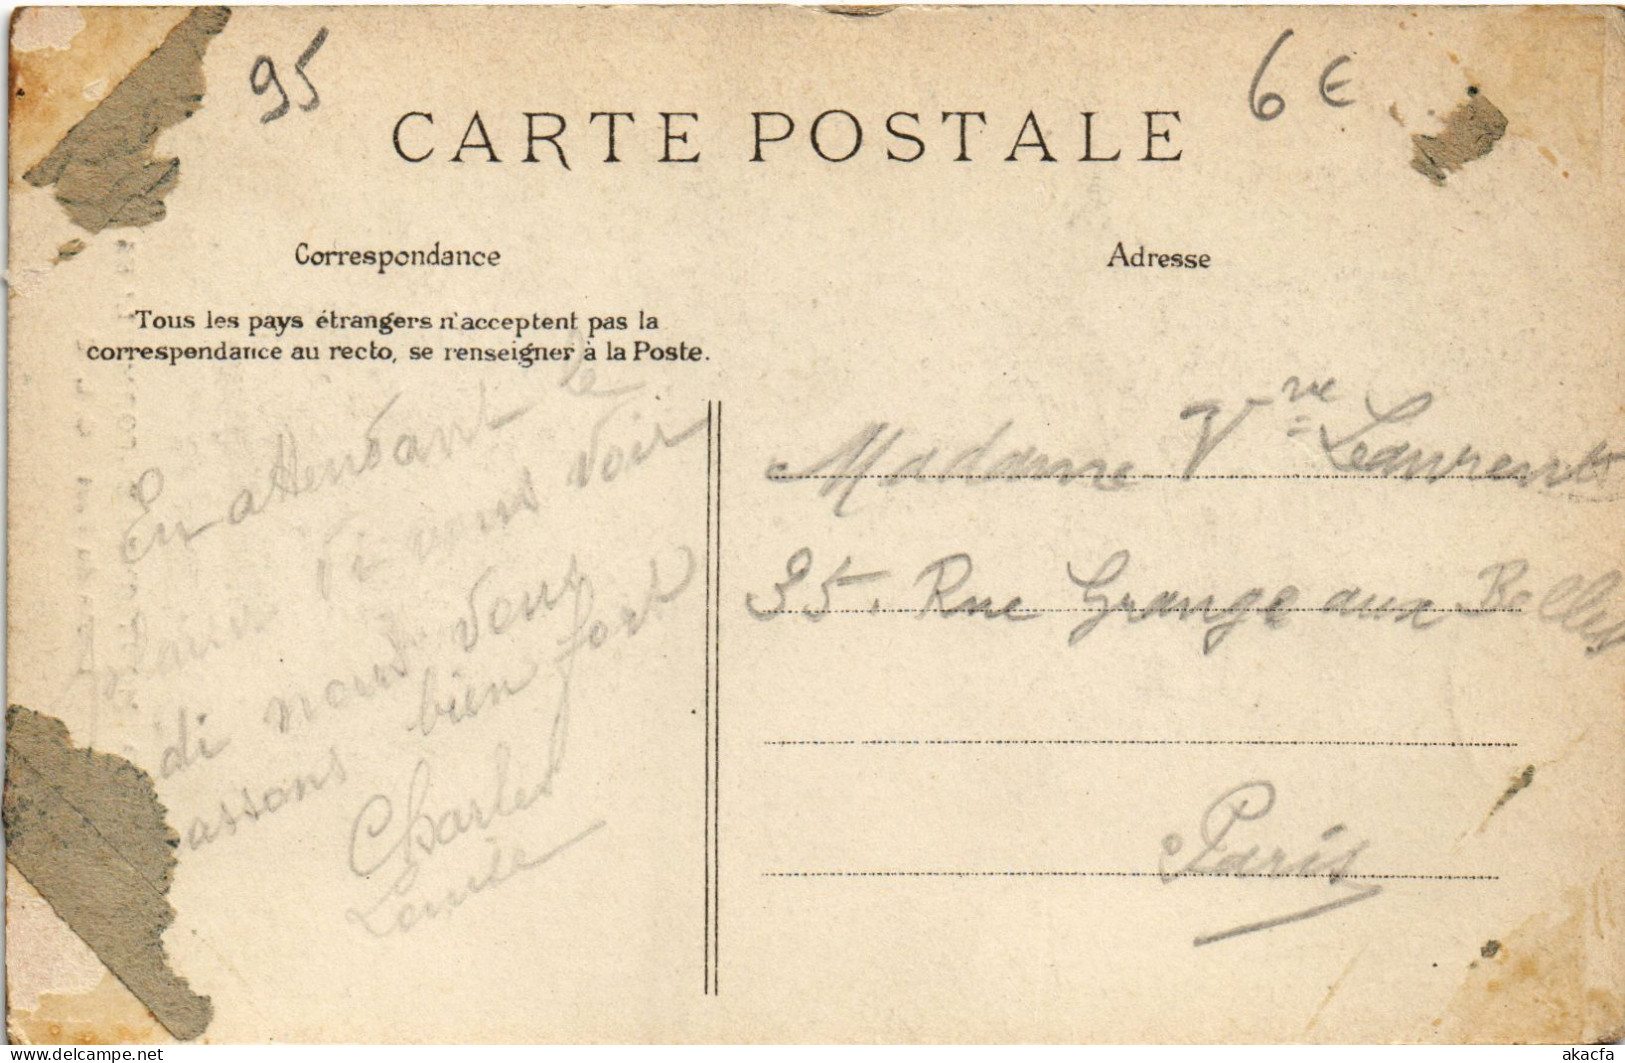 95
6 €
CARTE POSTALE
Correspondance
Adresse
Tous les pays étrangers n'acceptent pas la
correspondance au recto, se renseigner à la Poste.
En attendant le
plaisir de vous voir
di nous vous
assons bien fort
Charles
Louise
Madame Vve Laurent
35. Rue Grange aux Belles
Paris
www.delcampe.net
akacfa